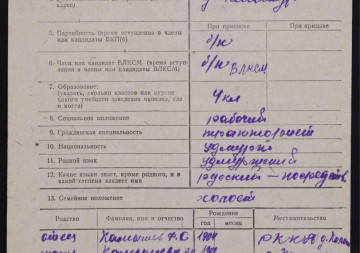 адрес)
При приписке При призыве
5. Партийность (время вступления в члены
или кандидаты ВКП(б)
б/п
6. Член или кандидат ВЛКСМ, (время вступ-
ления в члены или кандидаты ВЛКСМ)
б/п ВЛКСМ
7. Образование:
(указать, сколько классов или курсов
какого учебного заведения окончил, где
и когда)
4 кл
8. Социальное положение рабочий
9. Гражданская специальность тракторист
10. Национальность удмурт
11. Родной язык удмуртский
12. Какие языки знает, кроме родного, и в
какой степени владеет ими
русский — посредств.
13. Семейное положение холост
Родство Фамилия, имя и отчество Рождение Местожительство
год месяц
отец 1904 РККА